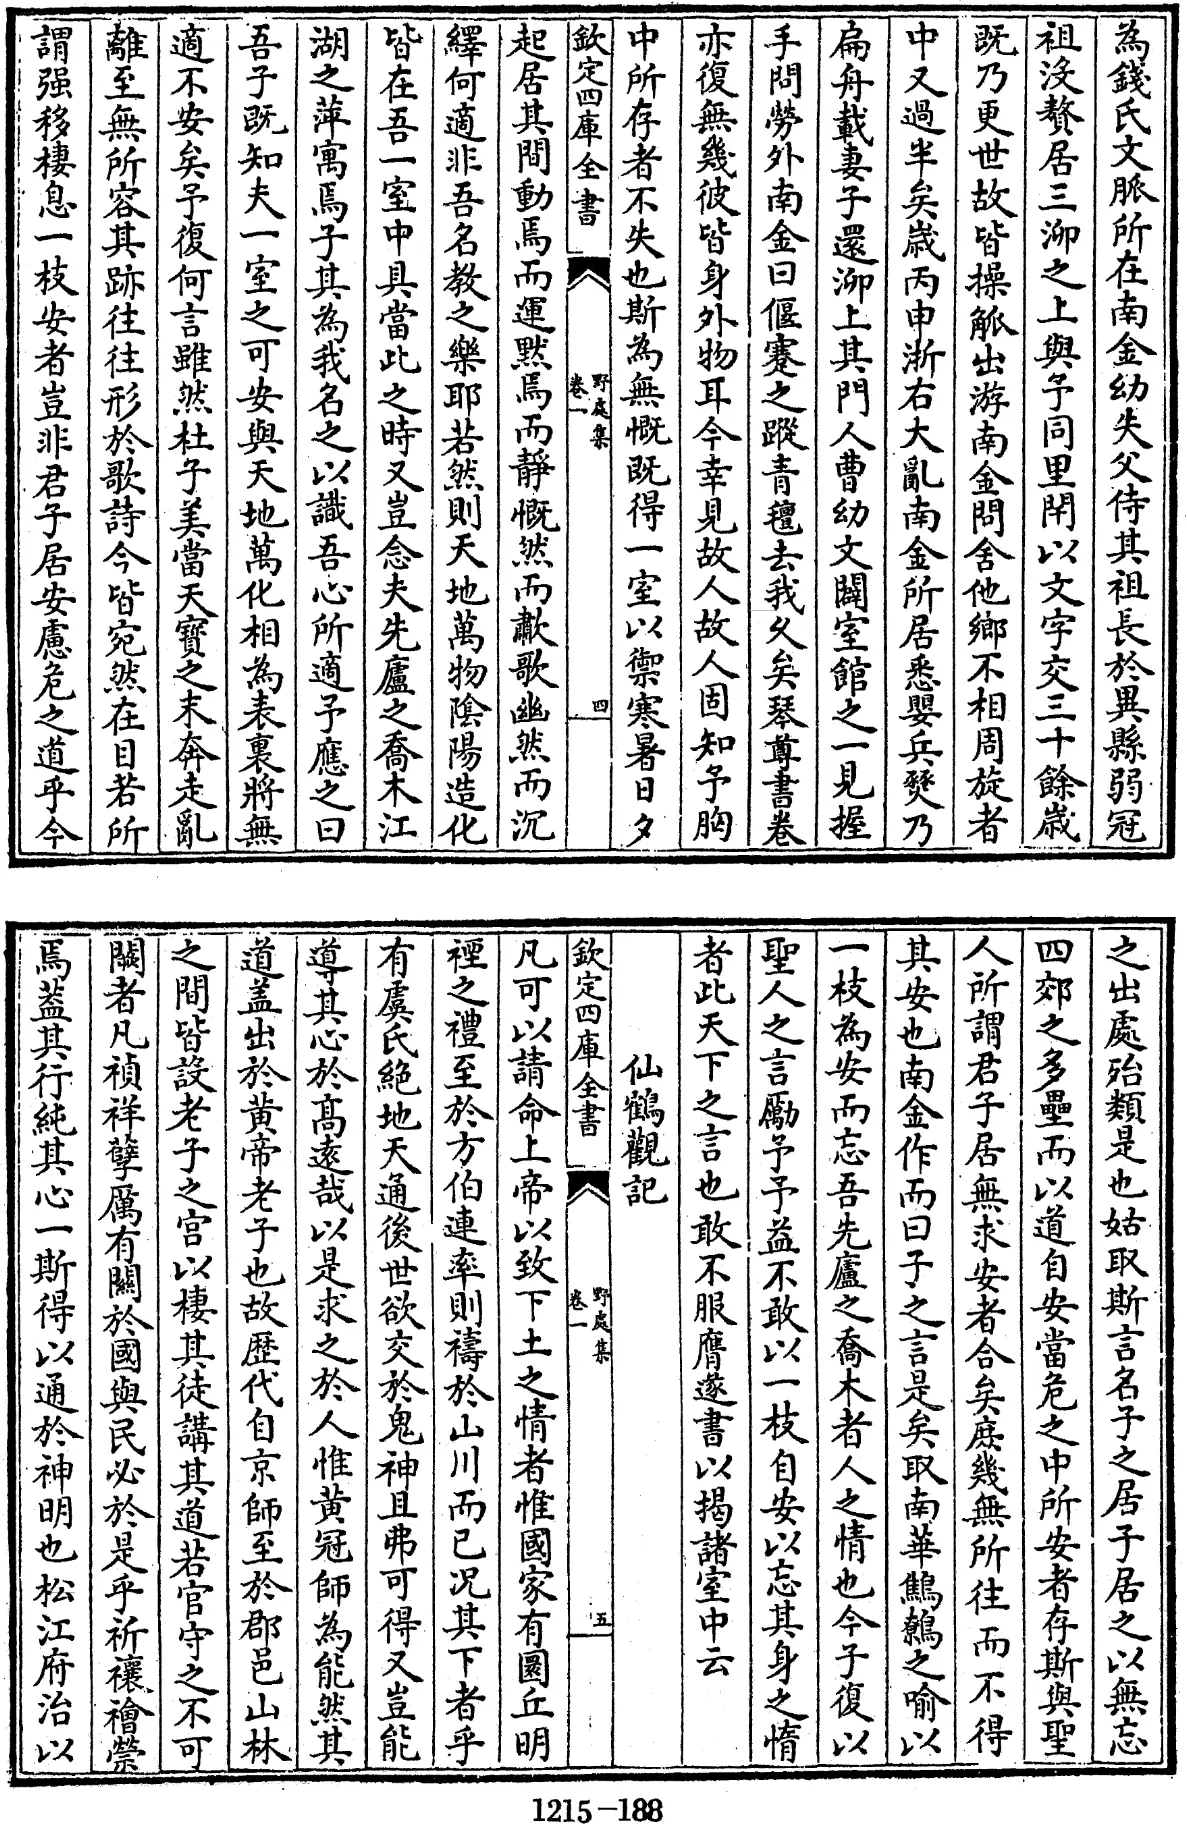 為錢氏文脈所在南金幼失父侍其祖長於異縣弱冠
祖沒贅居三泖之上與予同里閈以文字交三十餘歲
既乃更世故皆操觚出游南金問舍他鄉不相周旋者
中又過半矣歲丙申浙右大亂南金所居悉嬰兵燹乃
扁舟載妻子還泖上其門人曹幼文闢室館之一見握
手問勞外南金曰偃蹇之蹤青氊去我乆矣琴尊書卷
亦復無幾彼皆身外物耳今幸見故人故人固知予胸
中所存者不失也斯為無慨既得一室以禦寒暑日夕
欽定四庫全書
野處集
卷一
四
起居其間動焉而運黙焉而靜慨然而歗歌幽然而沉
繹何適非吾名教之樂耶若然則天地萬物陰陽造化
皆在吾一室中具當此之時又豈念夫先廬之喬木江
湖之萍寓焉子其為我名之以識吾心所適予應之曰
吾子既知夫一室之可安與天地萬化相為表裏將無
適不安矣予復何言雖然杜子美當天寶之末奔走亂
離至無所容其跡往往形於歌詩今皆宛然在目若所
謂强移棲息一枝安者豈非君子居安慮危之道乎今
之出處殆類是也姑取斯言名子之居子居之以無忘
四郊之多壘而以道自安當危之中所安者存斯與聖
人所謂君子居無求安者合矣庶幾無所往而不得
其安也南金作而曰子之言是矣取南華鷦鷯之喻以
一枝為安而忘吾先廬之喬木者人之情也今子復以
聖人之言勵予予益不敢以一枝自安以忘其身之惰
者此天下之言也敢不服膺遂書以揭諸室中云
仙鶴觀記
欽定四庫全書
野處集
卷一
五
凡可以請命上帝以致下土之情者惟國家有圜丘明
禋之禮至於方伯連率則禱於山川而已况其下者乎
有虞氏絶地天通後世欲交於鬼神且弗可得又豈能
導其心於高遠哉以是求之於人惟黄冠師為能然其
道盖出於黄帝老子也故歴代自京師至於郡邑山林
之間皆設老子之宮以棲其徒講其道若官守之不可
闕者凡禎祥孽厲有關於國與民必於是乎祈禳禬禜
焉葢其行純其心一斯得以通於神明也松江府治以
1215-188